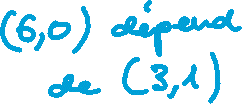 (6,0) dépend
de (3,1)